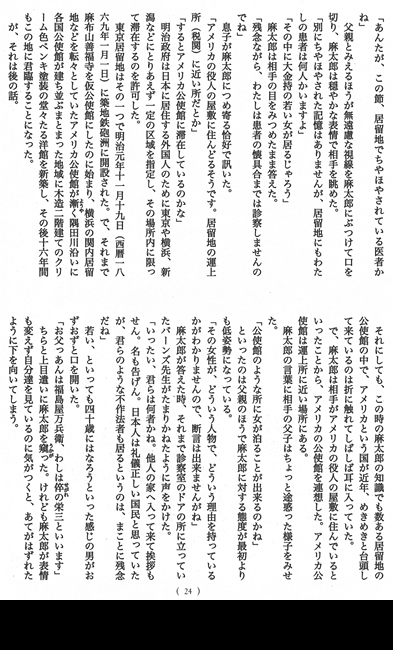 「あんたが、この節、居留地でちやほやされている医者か
ね」
父親とみえるほうが無遠慮な視線を麻太郎にぶつけて口を
切り、麻太郎は穏やかな表情で相手を眺めた。
「別にちやほやされた記憶はありませんが、居留地にもわた
しの患者は何人かいますよ」
「その中に大金持の若い女が居るじゃろう」
麻太郎は相手の目をみつめたまま答えた。
「残念ながら、わたしは患者の懐具合までは診察しませんの
でね」
息子が麻太郎につめ寄る恰好で訊いた。
「アメリカの役人の屋敷に住んどるそうです。居留地の運上
所（税関）に近い所だとか」
「するとアメリカ公使館に滞在しているのかな」
明治政府は日本に居住する外国人のために東京や横浜、新
潟などにとりあえず一定の区域を指定し、その場所内に限っ
て滞在するのを許可した。
東京居留地はその一つで明治元年十一月十九日（西暦一八
六九年一月一日）に築地鉄砲洲に開設された。で、それまで
麻布山善福寺を仮公使館にしたのに始まり、横浜の関内居留
地などを転々としていたアメリカ公使館が漸く隅田川沿いに
各国公使館が建ち並ぶまとまった地域に木造二階建てのクリ
ーム色ペンキ塗装の堂々たる洋館を新築し、その後十六年間
もこの地に君臨することになった。
が、それは後の話。
それにしても、この時の麻太郎の知識でも数ある居留地の
公使館の中で、アメリカという国が近年、めきめきと台頭し
て来ているのは折に触れてしばしば耳に入っていた。
で、麻太郎は相手がアメリカの役人の屋敷に住んでいると
いったことから、アメリカの公使館を連想した。アメリカ公
使館は運上所に近い場所にある。
麻太郎の言葉に相手の父子はちょっと途惑った様子をみせ
た。
「公使館のような所に女が泊ることが出来るのかね」
といったのは父親のほうで麻太郎に対する態度が最初より
も低姿勢になっている。
「その女性が、どういう人物で、どういう理由を持っている
かがわかりませんので、断言は出来ませんがね」
麻太郎が答えた時、それまで診察室のドアの所に立ってい
たバーンズ先生がたまりかねたように声をかけた。
「いったい、君らは何者かね。他人の家へ入って来て挨拶も
せん。名も告げん。日本人は礼儀正しい国民と思っていた
が、君らのような不作法者も居るというのは、まことに残念
だね」
若い、といっても四十歳にはなろうといった感じの男がお
ずおずと口を開いた。
「お父っつぁんは福島屋万兵衛、わしは倅の栄三といいます」
ちらりと上目遣いに麻太郎を窺った。けれども麻太郎が表情
も変えず自分達を見ているのに気がつくと、あてがはずれた
ように下を向いてしまう。
( 24 )